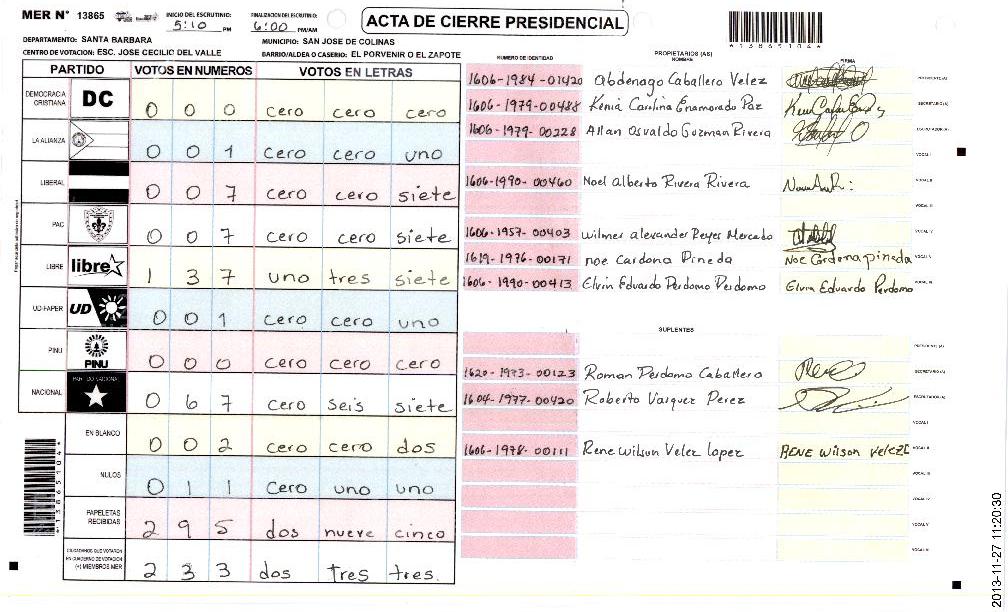 MER Nº 13865
INICIO DEL ESCRUTINIO: 5:10 PM
FINALIZACION DEL ESCRUTINIO: 6:00 PM/AM
ACTA DE CIERRE PRESIDENCIAL
*13865104*
DEPARTAMENTO: SANTA BARBARA
MUNICIPIO: SAN JOSE DE COLINAS
CENTRO DE VOTACION: ESC. JOSE CECILIC DEL VALLE
BARRIO/ALDEA O CASERIO: EL PORVENIR O EL ZAPOTE
PARTIDO VOTOS EN NUMEROS VOTOS EN LETRAS
DEMOCRACIA CRISTIANA DC 0 0 0 cero cero cero
LA ALIANZA 0 0 1 cero cero uno
LIBERAL 0 0 7 cero cero siete
PAC 0 0 7 cero cero siete
LIBRE libre 1 3 7 uno tres siete
UD-FAPER UD 0 0 1 cero cero uno
PINU PINU 0 0 0 cero cero cero
NACIONAL PARTIDO NACIONAL 0 6 7 cero seis siete
EN BLANCO 0 0 2 cero cero dos
NULOS 0 1 1 cero uno uno
PAPELETAS RECIBIDAS 2 9 5 dos nueve cinco
CIUDADANOS QUE VOTARON EN CUADERNO DE VOTACION (+) MIEMBROS MER 2 3 3 dos tres tres.
PROPIETARIOS (AS)
NUMERO DE IDENTIDAD NOMBRE FIRMA
1606-1984-01420 Abdenago Caballero Velez PRESIDENTE (A)
1606-1979-00488 Kenia Carolina Enamorado Paz SECRETARIO (A)
1606-1979-00228 Allan Osvaldo Guzman Rivera ESCRUTADOR (A)
VOCAL I
1606-1990-00460 Noel Alberto Rivera Rivera VOCAL II
VOCAL III
1606-1957-00403 Wilmer alexander Reyes Mercado VOCAL IV
1619-1976-00171 noe Cardona Pineda Noe Cardona pineda VOCAL V
1606-1990-00413 Elvin Eduardo Perdomo Perdomo Elvin Eduardo Perdomo VOCAL VI
SUPLENTES
PRESIDENTE (A)
1620-1973-00123 Roman Perdomo Caballero SECRETARIO (A)
1604-1977-00420 Roberto Vasquez Perez ESCRUTADOR (A)
VOCAL I
1606-1978-00111 Rene Wilson Velez lopez RENE Wilson Velez VOCAL II
VOCAL III
VOCAL IV
VOCAL V
VOCAL VI
*13865104*
2013-11-27 11:20:30